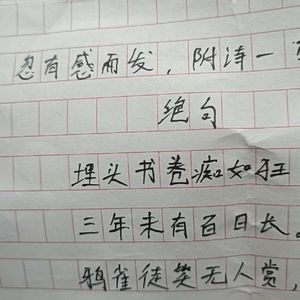 忽有感而发，附诗一
绝句
埋头书卷痴如狂
三年未有百日长。
鸦雀徒笑无人赏，